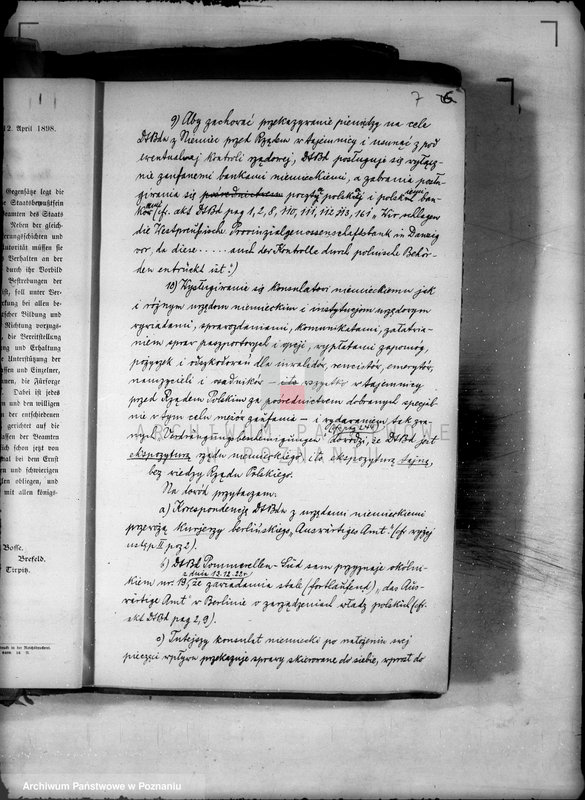 7 6
12. April 1898.
Gegensätze legt die
e Staatsbewußtsein
Beamten des Staats
Neben der gleich-
erungschichten und
Autorität müssen sie
Verhalten an der
durch ihr Vorbild
Bestrebungen der
ist, soll unter Ver-
erkung bei allen be-
rischer Bildung und
Richtung vorzugs-
die Bereitstellung
ng und Erhaltung
e Unterstützung der
ssen und Einzelner,
nen, die Fürsorge
Dabei ist jedes
en und den willigen
der entschiedenen
gerichtet auf die
assen der Beamten
sich schon jetzt von
mal bei dem Ernst
en und schwierigen
en obliegen, und
mit allen königs-
Bosse.
Brefeld.
Tirpitz.
9) Aby zachować przekazywanie pieniędzy na cele
DtBtu z Niemiec przed Rządem w tajemnicy i usunąć z pod
ewentualnej kontroli rządowej, DtBt posługuje się wyłącz-
nie zaufanemi bankami niemieckiemi, a zabrania posłu-
giwania się pośrednictwem pocztą polską i polskimi ban-
kami (cf. akt DtBt pag 1, 2, 8, 110, 111, 112, 113, 161 „Wir schlagen
die Westpreußische Provinzialgenossenschaftsbank in Danzig
vor, da diese..... auch der Kontrolle durch polnische Behör-
den entrückt ist.")
10) Wysługiwanie się konsulatowi niemieckiemu jak
i różnym urzędom niemieckim i instytucjom urzędowym
wywiadami, sprawozdaniami, komunikatami, załatwia-
niem spraw paszportowych i opcji, wypłatami zapomóg,
pożyczek i odszkodowań dla inwalidów, rencistów, emerytów,
nauczycieli i wdów – i to wszystko w tajemnicy
przed Rządem Polskim za pośrednictwem dobranych specjal-
nie w tym celu mężów zaufania – i wydawaniem tak zwa-
nych „Verdrängungsbescheinigungen" dowodzi, że DtBt jest
ekspozyturą rządu niemieckiego i to ekspozyturą tajną,
bez wiedzy Rządu Polskiego.
Na dowód przytaczam:
a) Korespondencję DtBtu z urzędami niemieckiemi
przewożą kurjerzy berlińskiego „Auswärtiges Amt". (cf. wyżej
ustęp II pag 2).
b) DtBt Pommerellen-Süd sam przyznaje okólni-
z dnia 13.12.22r.
kiem nr. 19, że zawiadamia stale (fortlaufend) „das Aus-
wärtige Amt" w Berlinie o zarządzeniach władz polskich (cf.
akt DtBt pag 2, 9).
c) Tutejszy konsulat niemiecki po nałożeniu swej
pieczęci wpływu przekazuje sprawy skierowane do siebie, wprost do
ARCHIWUM PAŃSTWOWE
W POZNANIU
Archiwum Państwowe w Poznaniu